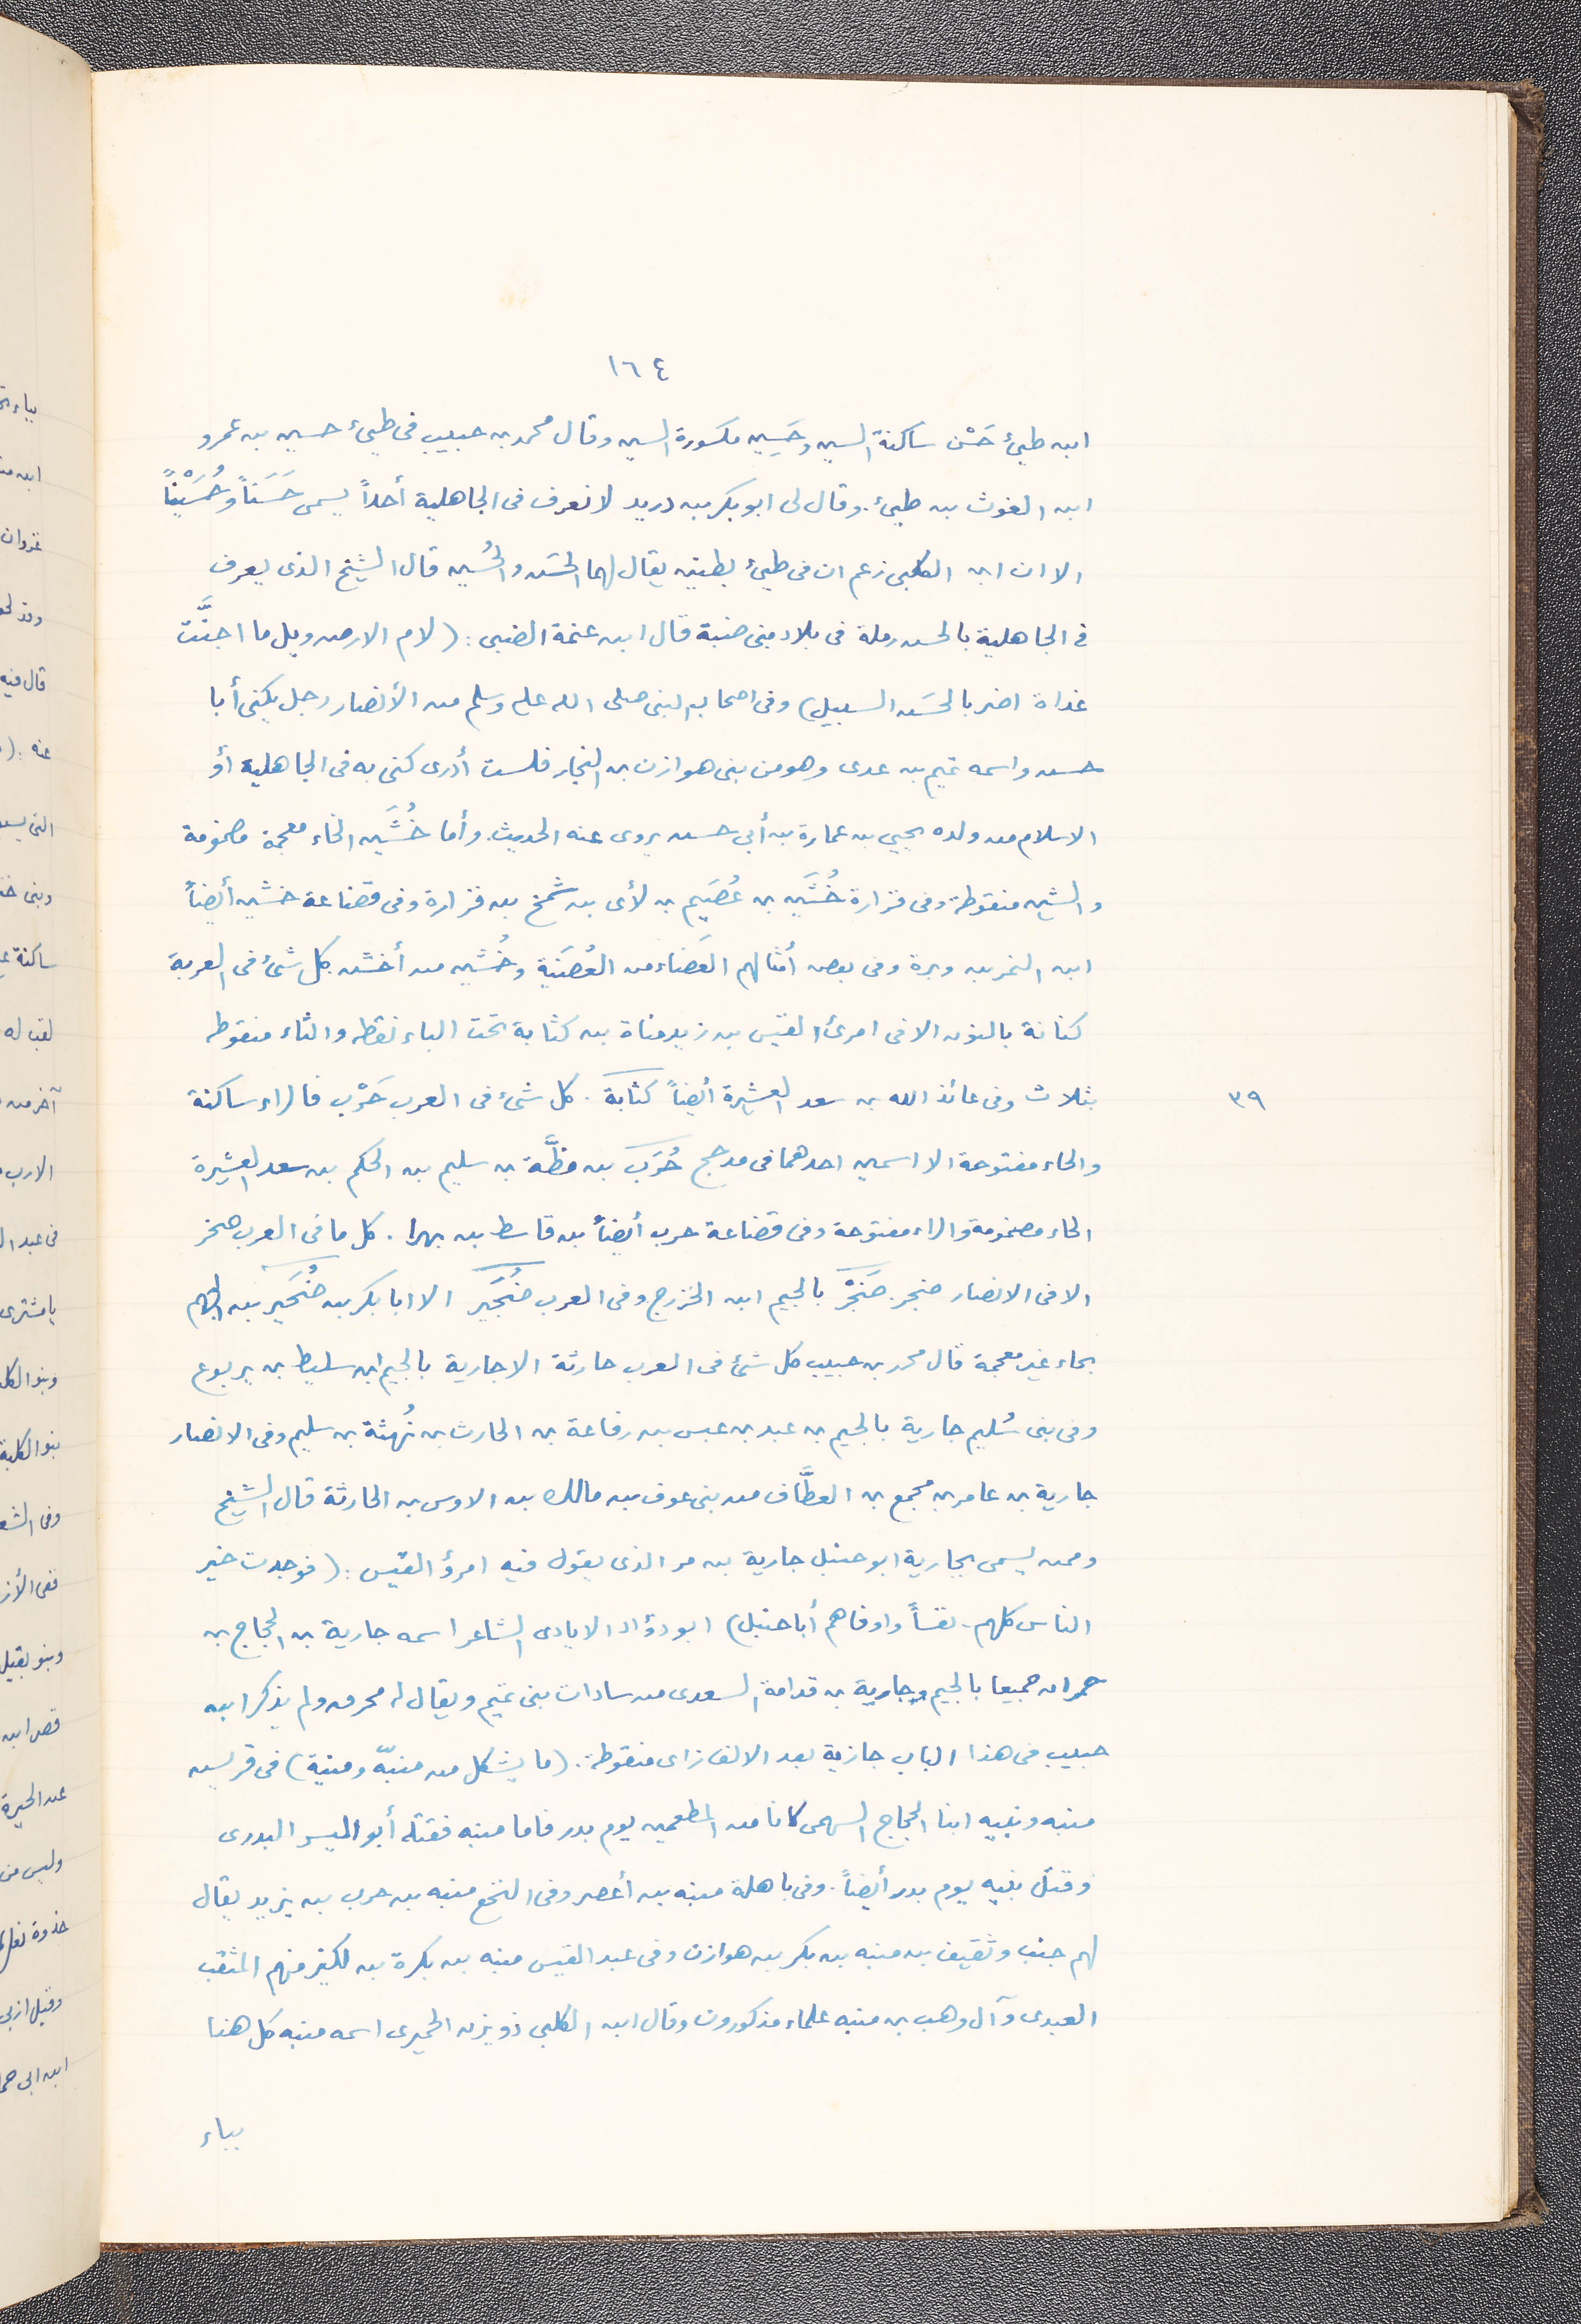 ١٦٤
ابن طيئ حَسْن ساكنة السين وحَسِين مكسورة السين وقال محمد بن حبيب فى طيئ حسين بن عمرو
ابن الغوث بن طيئ. وقال لى ابو بكر بن دريد لا نعرف فى الجاهلية أحداً يسمى حَسَناً وحُسَيْناً
الا ان ابن الكلبى زعم ان فى طيئ بطنين يقال لهما الحَسَن والحُسين قال الشيخ الذى يعرف
فى الجاهلية بالحسن رملة فى بلاد بنى ضبة قال ابن عنمة الضبى: (لام الارض ويل ما اجنَّت
غداة اضر بالحَسَن السبيل) وفى اصحاب النبى صلى الله عليه وسلم من الأنصار رجل يكنى أبا
حسن واسمه تميم بن عدى وهو من بنى هوازن بن النجار فلست أدرى كنى به فى الجاهلية أو
الاسلام من ولده يحيى بن عمارة بن أبى حسن يروى عنه الحديث. وأما خُشَين الخاء معجمة مضمومة
والشين منقوطة وفى فزارة خُشَين بن عُصَيم بن لأى بن شمخ بن فزارة وفى قضاعة خشين أيضاً
ابن النمر بن وبرة وفى بعض أمثالهم العَصَاء من العُصَيَّة وخُشين من أخشن كل شئ فى العرب
كنانة بالنون الا فى امرئ القيس بن زيد مناة بن كثابة تحت الباء نقطه والثاء منقوطه
بثلاث وفى عائذ الله بن سعد العشيرة أيضاً كثابة. كل شئ فى العرب حَرْب فالراء ساكنة
٣٩
والحاء مفتوحة الا اسمين احدهما فى مذحج حُرَب بن مظَّة بن سليم بن الحكم بن سعد العشيرة
الحاء مضمومة والراء مفتوحة وفى قضاعة حرب أيضاً بن قاسط بن بهرا. كل ما فى العرب صخر
الا فى الانصار ضجر. ضَجْر بالجيم ابن الخزرج وفى العرب ضُجَير الا ابا بكر بن صُحَير بن الجهم
بحاء غير معجمة قال محمد بن حبيب كل شئ فى العرب حارثة الا جارية بالجيم ابن سليط بن يربوع
وفى بنى سُليم جارية بالجيم بن عبد بن عبس بن رفاعة بن الحارث بن بُهثة بن سليم وفى الانصار
جارية بن عامر بن مجمع بن العطَّاف من بنى عوف بن مالك بن الاوس بن الحارثة قال الشيخ
وممن يسمى بجارية ابو حنبل جارية بن مر الذى يقول فيه امرؤ القيس: (فوجدت خير
الناس كلهم. نفساً واوفاهم أبا حنبل) ابو دؤاد الايادى الشاعر اسمه جارية بن الحجاج بن
حمران جميعا بالجيم وجارية بن قدامة السعدى من سادات بنى تميم ويقال له محرق ولم يذكر ابن
حبيب فى هذا الباب جازية بعد الالف زاى منقوطة. (ما يشكل من منبّه ومنية) فى قريش
منبه ونبيه ابنا الحجاج السهمى كانا من المطعمين يوم بدر فاما منبه فقتله أبو اليسر البدرى
وقتل نبيه يوم بدر أيضاً. وفى باهلة منبه بن أعصر وفى النخع منبه بن حرب بن يزيد يقال
لهم جنب وثقيف بن منبه بن بكر بن هوازن وفى عبد القيس منبه بن بكرة بن لكيز منهم المثقب
العبدى وآل وهب بن منبه علماء مذكورون وقال ابن الكلبى ذو يزن الحميرى اسمه منبه كل هنا
بباء